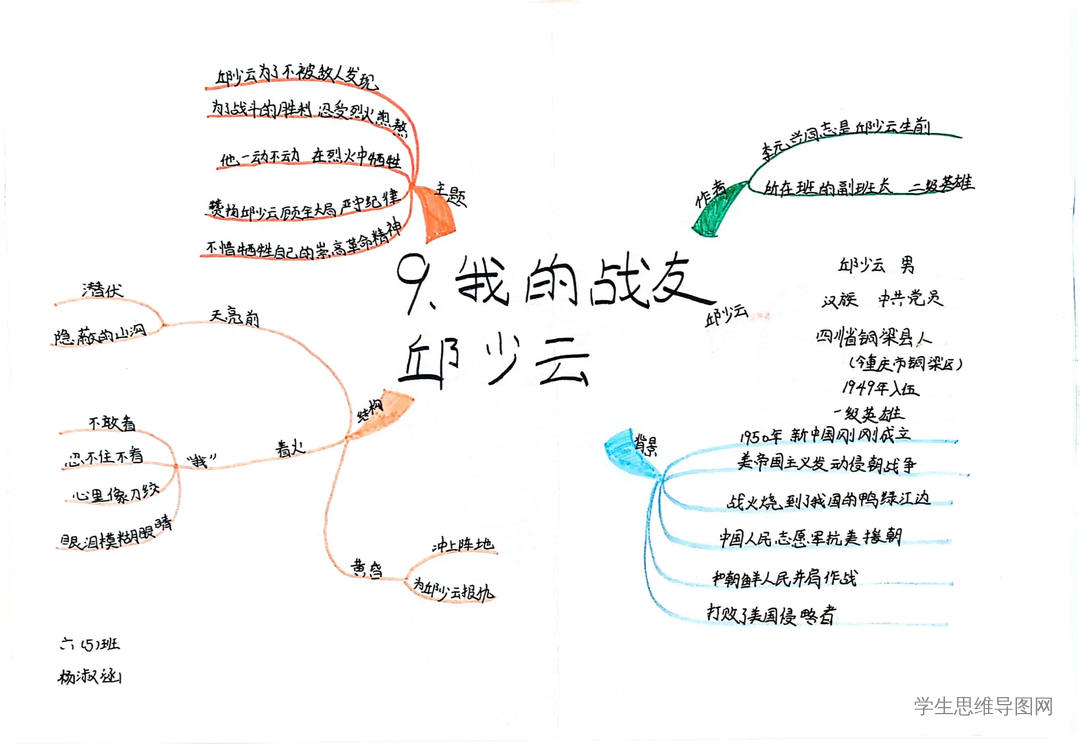 9.我的战友
邱少云
主题
邱少云为了不被敌人发现
为了战斗的胜利 忍受烈火煎熬
他一动不动 在烈火中牺牲
赞扬邱少云顾全大局 严守纪律
不惜牺牲自己的崇高革命精神
作者
李元兴同志是邱少云生前
所在班的副班长 二级英雄
邱少云
邱少云 男
汉族 中共党员
四川省铜梁县人
(今重庆市铜梁区)
1949年入伍
一级英雄
背景
1950年 新中国刚刚成立
美帝国主义发动侵朝战争
战火烧到了我国的鸭绿江边
中国人民志愿军抗美援朝
和朝鲜人民并肩作战
打败了美国侵略者
结构
天亮前
潜伏
隐蔽的山沟
着火
"我"
不敢看
忍不住不看
心里像刀绞
眼泪模糊眼睛
黄昏
冲上阵地
为邱少云报仇
六(5)班
杨淑涵
学生思维导图网